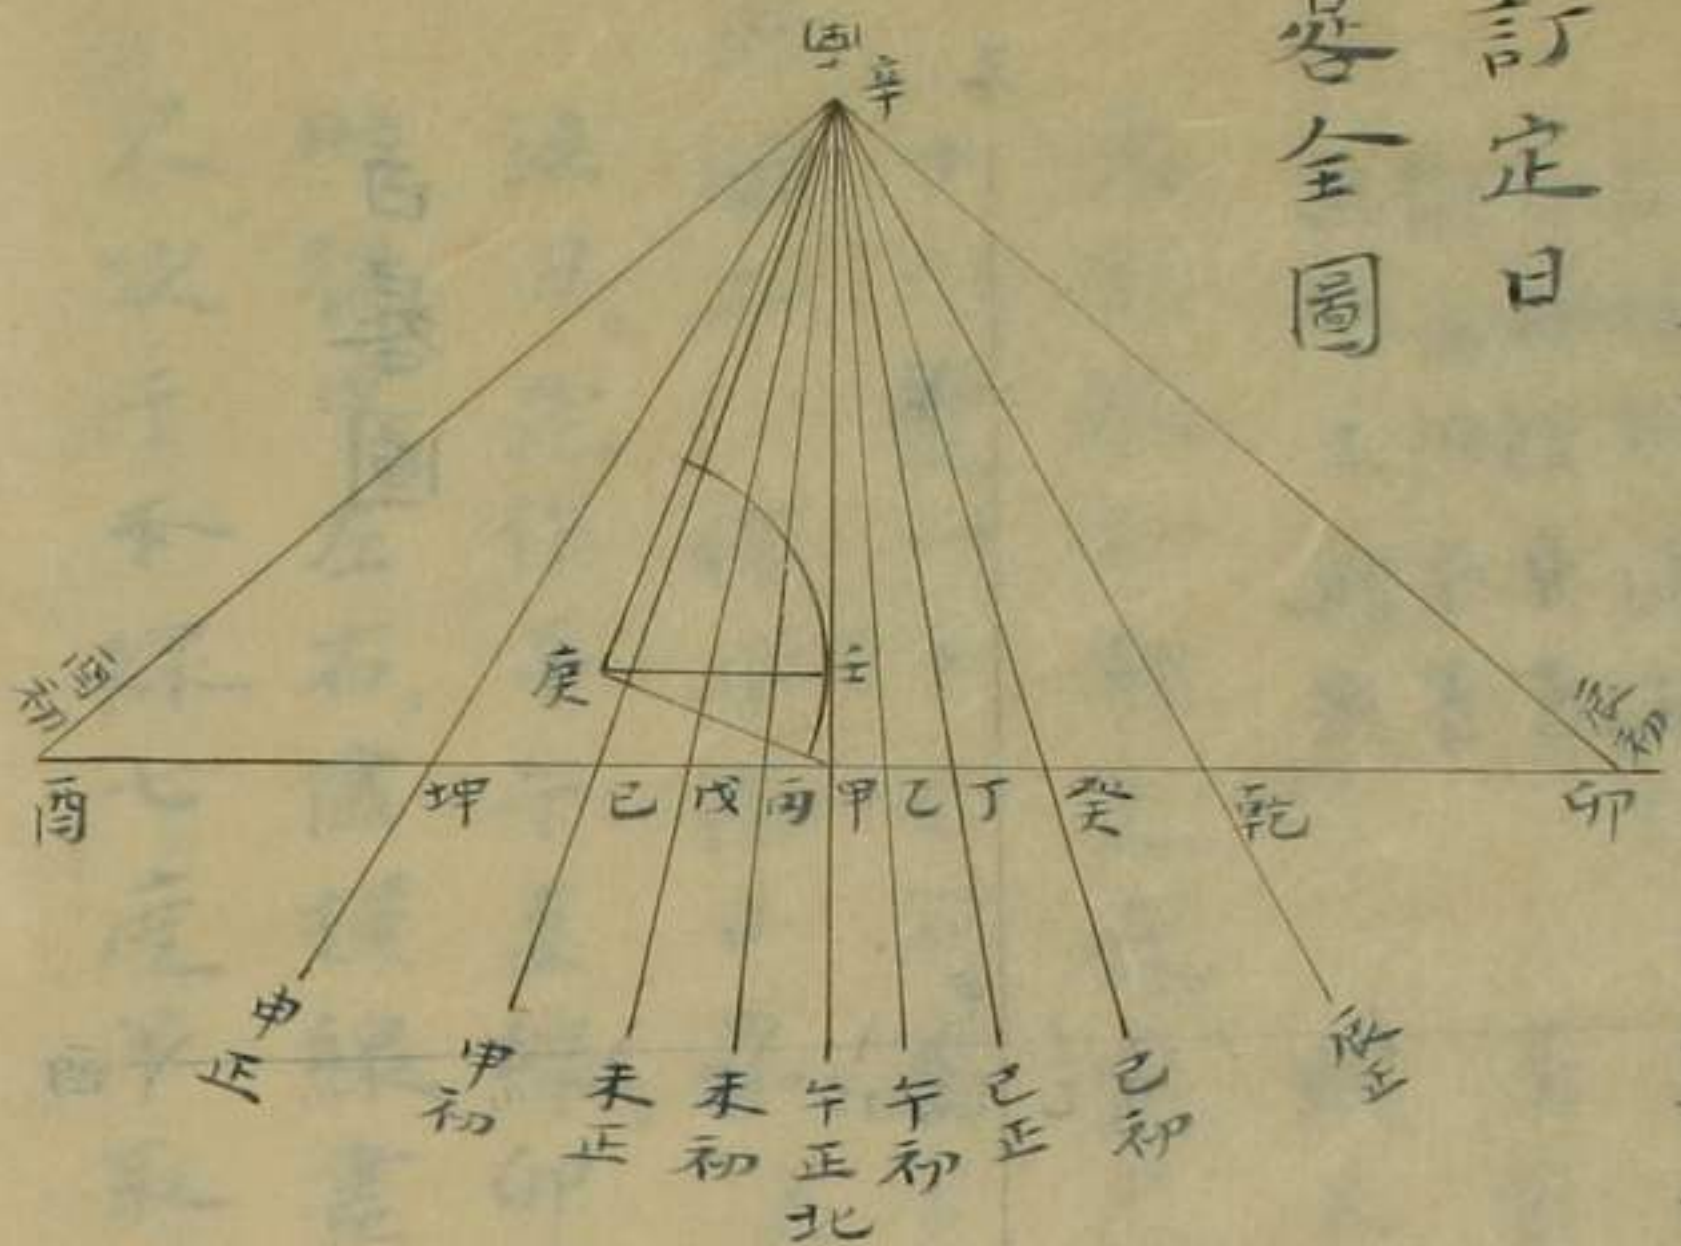 訂定日
晷全圖
南
辛
庚
壬
酉初
辰初
酉
坤
己
戊
丙
甲
乙
丁
癸
乾
卯
申正
申初
未正
未初
午正
午初
巳正
巳初
辰正
北